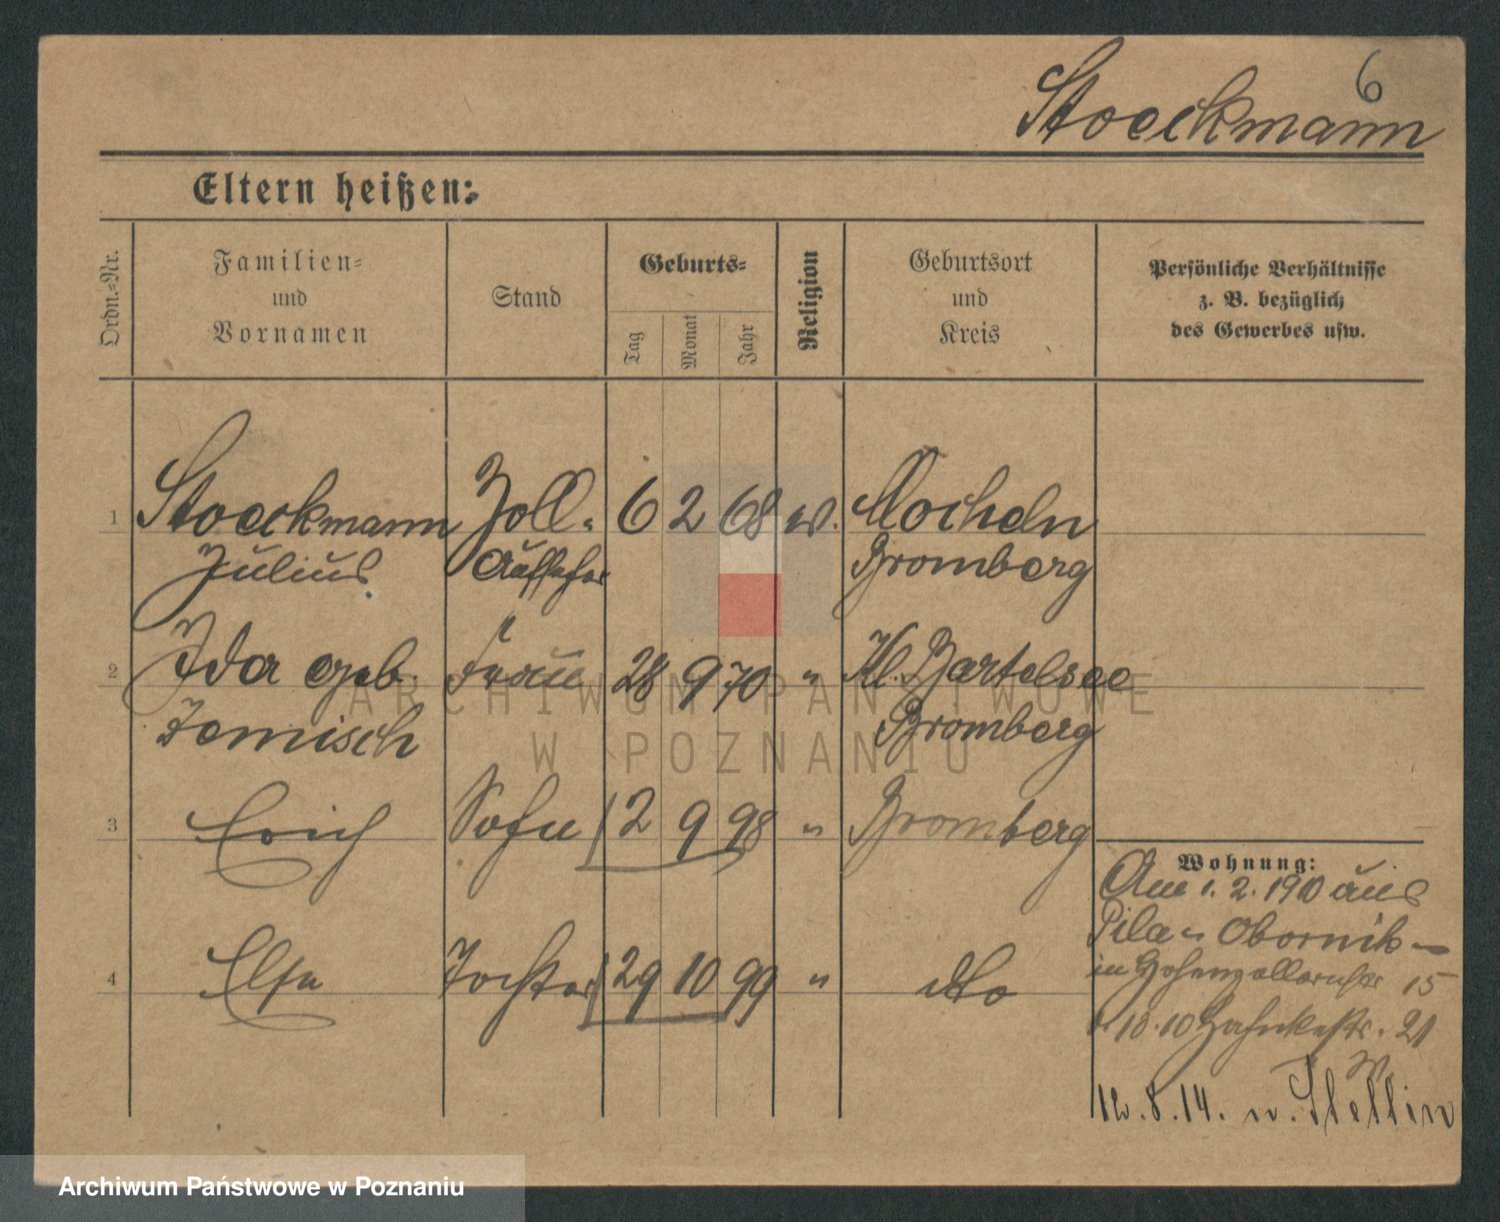 6
Stoeckmann
Eltern heißen:
Ordn.=Nr.
Familien=
und
Vornamen
Stand
Geburts=
Tag
Monat
Jahr
Religion
Geburtsort
und
Kreis
Persönliche Verhältnisse
z. B. bezüglich
des Gewerbes usw.
1 Stoeckmann Zoll= 6 2 68 ev. Mocheln
Julius Aufseher Bromberg
2 Ida geb. Frau 28 9 70 " Kl. Bartelsee
Jemisch Bromberg
3 Erich Sohn 12 9 98 " Bromberg
4 Else Tochter 29 10 99 " dto
Wohnung:
Am 1. 2. 1910 aus
Pila - Obornik -
in Hohenzollernstr 15
18.10 21
12.8.14. n. Stettin
ARCHIWUM PAŃSTWOWE
W POZNANIU
Archiwum Państwowe w Poznaniu